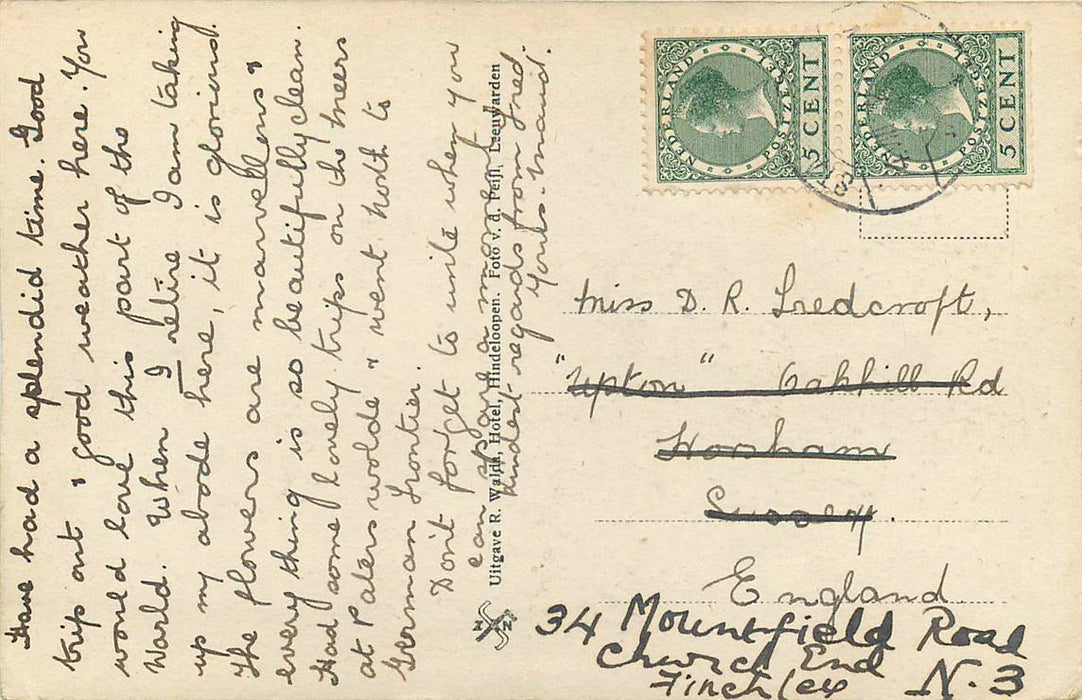 Have had a splendid time. Good
trip out & good weather here. You
would love this part of the
World. When I retire I am taking
up my abode here, it is glorious.
The flowers are marvellous &
every thing is so beautifully clean.
Had some lovely trips on the meers
at Paterswolde & went North to
German Frontier.
Don't forget to write when you
can spare a moment
Kindest regards from Fred
Yours. Maud.
Uitgave R. Walda, Hotel, Hindeloopen. Foto v. d. Feijt, Leeuwarden
NEDERLAND
POSTZEGEL
5 CENT
NEDERLAND
POSTZEGEL
5 CENT
Miss D. R. Fredcroft,
"Upton" Oakhill Rd
Horsham
Sussex.
England
34 Mountfield Road
Church End
Finchley N.3